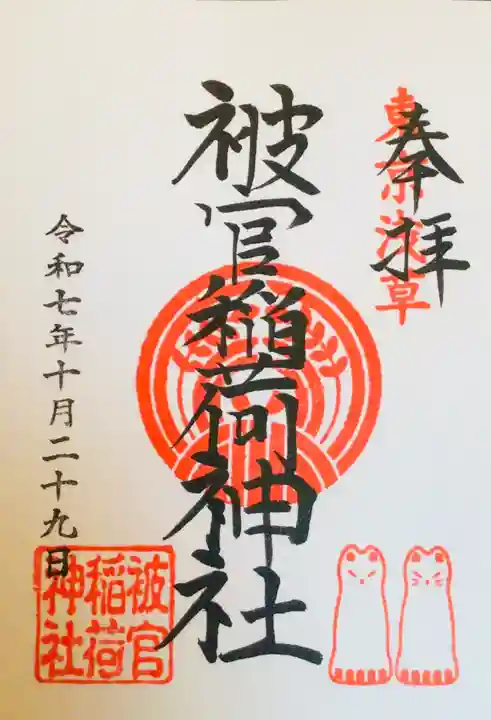 奉拝
東京浅草
被官稲荷神社
令和七年十月二十九日
被官
稲荷
神社